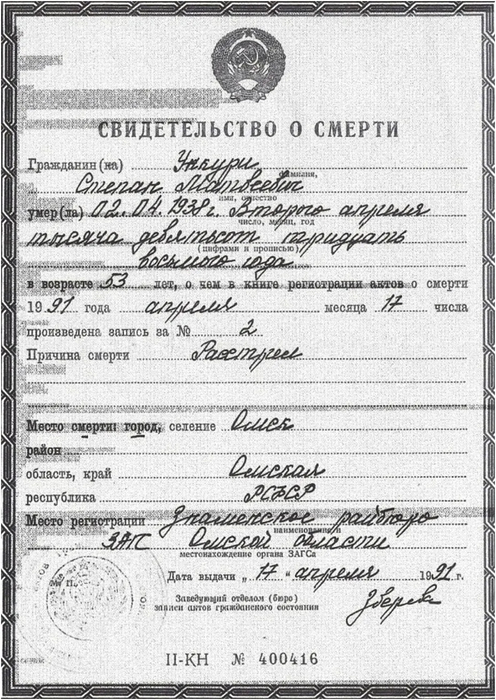 СВИДЕТЕЛЬСТВО О СМЕРТИ
Гражданин (ка) Ункури
фамилия,
Степан Матвеевич
имя, отчество
умер(ла) 02.04.1938 г. Второго апреля
число, месяц, год
тысяча девятьсот тридцать
(цифрами и прописью)
восьмого года
в возрасте 53 лет, о чем в книге регистрации актов о смерти
1991 года апреля месяца 17 числа
произведена запись за № 2
Причина смерти Расстрел
Место смерти: город, селение Омск
район
область, край Омская
республика РСФСР
Место регистрации Знаменское райбюро
наименование
ЗАГС Омской области
местонахождение органа ЗАГСа
Дата выдачи „17" апреля 1991 г.
Заведующий отделом (бюро)
записи актов гражданского состояния
II-КН № 400416